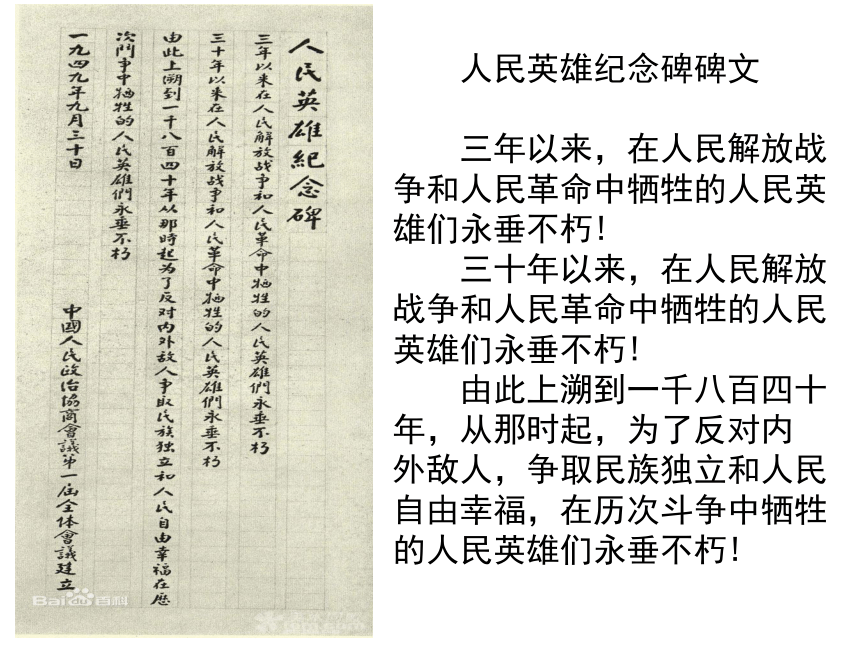 人民英雄紀念碑
三年以来在人民解放战争和人民革命中牺牲的人民英雄們永垂不朽
三十年以来在人民解放战争和人民革命中牺牲的人民英雄們永垂不朽
由此上溯到一千八百四十年从那時起为了反对内外敌人争取民族独立和人民自由幸福在歷
次鬥争中牺牲的人民英雄們永垂不朽
一九四九年九月三十日
中國人民政治協商會議第一届全体會議建立
Baidu百科
人民英雄纪念碑碑文
三年以来，在人民解放战
争和人民革命中牺牲的人民英
雄们永垂不朽！
三十年以来，在人民解放
战争和人民革命中牺牲的人民
英雄们永垂不朽！
由此上溯到一千八百四十
年，从那时起，为了反对内
外敌人，争取民族独立和人民
自由幸福，在历次斗争中牺牲
的人民英雄们永垂不朽！